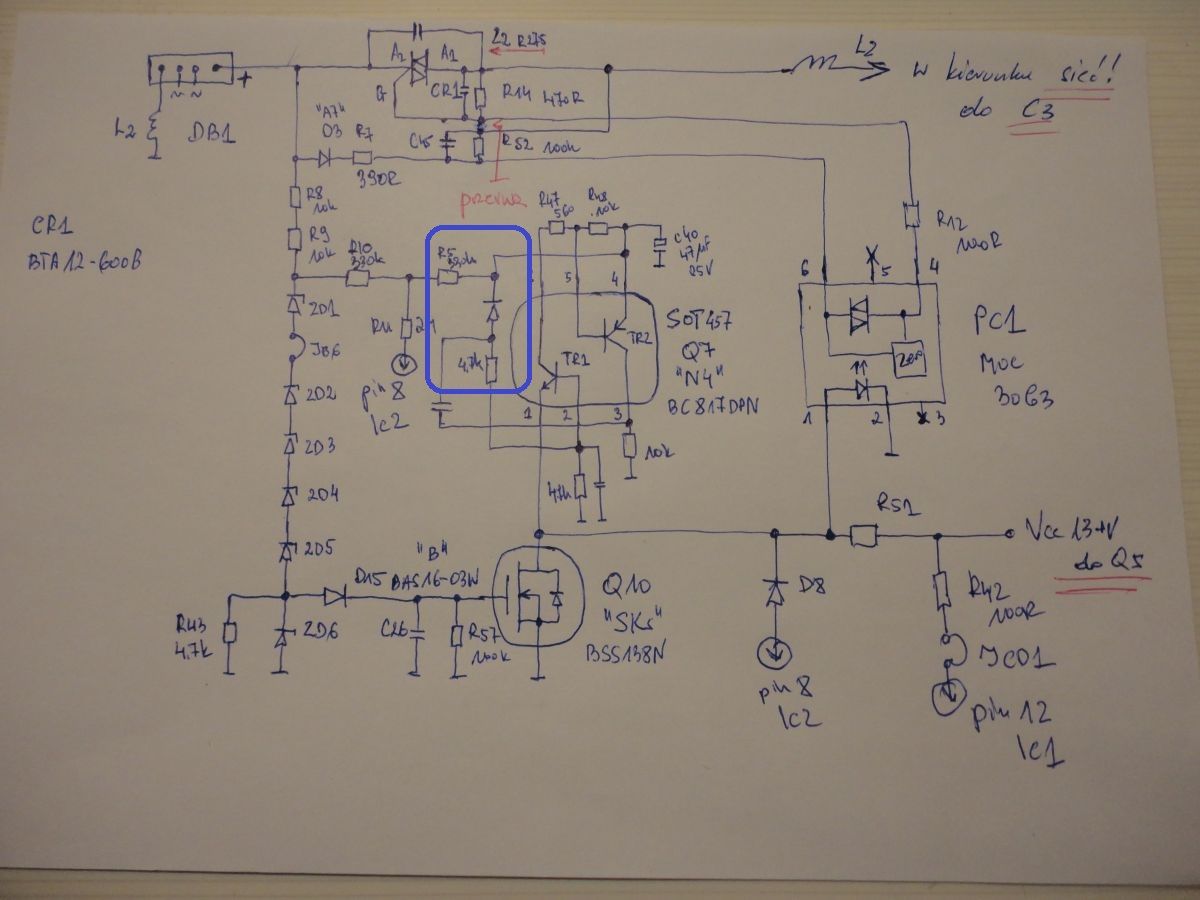 A2 A1
L2 R275
G
CR1
R14 470R
L2
w kierunku sieć!
do C3
+
~ ~
L2
DB1
"A7"
D3 R7
390R
C45
R52 100k
przerwa
R8
10k
R9
10k
CR1
BTA12-600B
R10
330k
R47
560
R48
10k
C40
47µF
25V
R12
100R
6 5 4
PC1
MOC
3063
ZCD
1 2 3
5 4
SOT457
Q7
"N4"
BC817DPN
TR1
TR2
1 2 3
4.7k
pin 8
Ic2
10k
ZD1
JB6
ZD2
ZD3
ZD4
ZD5
D15 "B"
BAS16-03W
R43
4.7k
ZD6
C26
R57
100k
Q10
"SKs"
BSS138N
D8
pin 8
Ic2
R51
Vcc 13+V
do Q5
R42
100R
JC01
pin 12
Ic1